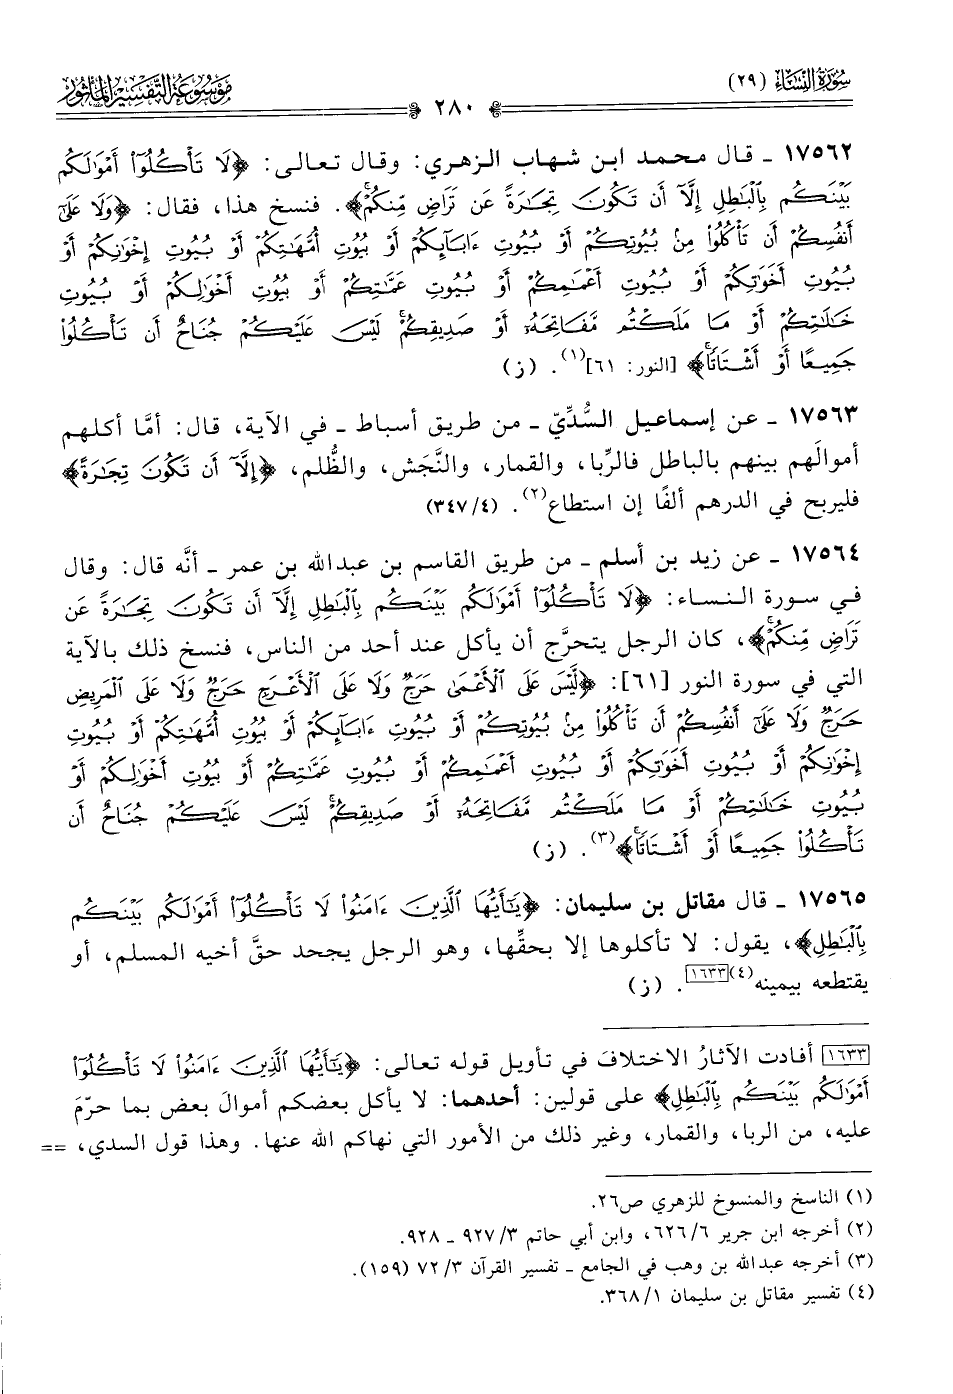 سُورَةُ النِّسَاءِ (٢٩)
٢٨٠
موسوعة التفسير المأثور
١٧٥٦٢ ـ قال محمد ابن شهاب الزهري: وقال تعالى: ﴿لَا تَأْكُلُوٓاْ أَمْوَٰلَكُم
بَيْنَكُم بِٱلْبَٰطِلِ إِلَّآ أَن تَكُونَ تِجَٰرَةً عَن تَرَاضٍ مِّنكُمْ﴾. فنسخ هذا، فقال: ﴿وَلَا عَلَىٰٓ
أَنفُسِكُمْ أَن تَأْكُلُواْ مِنۢ بُيُوتِكُمْ أَوْ بُيُوتِ ءَابَآئِكُمْ أَوْ بُيُوتِ أُمَّهَٰتِكُمْ أَوْ بُيُوتِ إِخْوَٰنِكُمْ أَوْ
بُيُوتِ أَخَوَٰتِكُمْ أَوْ بُيُوتِ أَعْمَٰمِكُمْ أَوْ بُيُوتِ عَمَّٰتِكُمْ أَوْ بُيُوتِ أَخْوَٰلِكُمْ أَوْ بُيُوتِ
خَٰلَٰتِكُمْ أَوْ مَا مَلَكْتُم مَّفَاتِحَهُۥٓ أَوْ صَدِيقِكُمْ ۚ لَيْسَ عَلَيْكُمْ جُنَاحٌ أَن تَأْكُلُواْ
جَمِيعًا أَوْ أَشْتَاتًا ۚ﴾ [النور: ٦١](١). (ز)
١٧٥٦٣ ـ عن إسماعيل السُّدِّيّ ـ من طريق أسباط ـ في الآية، قال: أمَّا أكلهم
أموالَهم بينهم بالباطل فالرِّبا، والقمار، والنَّجَش، والظُّلم، ﴿إِلَّآ أَن تَكُونَ تِجَٰرَةً﴾
فليربح في الدرهم ألفًا إن استطاع(٢). (٣٤٧/٤)
١٧٥٦٤ ـ عن زيد بن أسلم ـ من طريق القاسم بن عبدالله بن عمر ـ أنَّه قال: وقال
في سورة النساء: ﴿لَا تَأْكُلُوٓاْ أَمْوَٰلَكُم بَيْنَكُم بِٱلْبَٰطِلِ إِلَّآ أَن تَكُونَ تِجَٰرَةً عَن
تَرَاضٍ مِّنكُمْ ۚ﴾، كان الرجل يتحرَّج أن يأكل عند أحد من الناس، فنسخ ذلك بالآية
التي في سورة النور [٦١]: ﴿لَّيْسَ عَلَى ٱلْأَعْمَىٰ حَرَجٌ وَلَا عَلَى ٱلْأَعْرَجِ حَرَجٌ وَلَا عَلَى ٱلْمَرِيضِ
حَرَجٌ وَلَا عَلَىٰٓ أَنفُسِكُمْ أَن تَأْكُلُواْ مِنۢ بُيُوتِكُمْ أَوْ بُيُوتِ ءَابَآئِكُمْ أَوْ بُيُوتِ أُمَّهَٰتِكُمْ أَوْ بُيُوتِ
إِخْوَٰنِكُمْ أَوْ بُيُوتِ أَخَوَٰتِكُمْ أَوْ بُيُوتِ أَعْمَٰمِكُمْ أَوْ بُيُوتِ عَمَّٰتِكُمْ أَوْ بُيُوتِ أَخْوَٰلِكُمْ أَوْ
بُيُوتِ خَٰلَٰتِكُمْ أَوْ مَا مَلَكْتُم مَّفَاتِحَهُۥٓ أَوْ صَدِيقِكُمْ ۚ لَيْسَ عَلَيْكُمْ جُنَاحٌ أَن
تَأْكُلُواْ جَمِيعًا أَوْ أَشْتَاتًا ۚ﴾(٣). (ز)
١٧٥٦٥ ـ قال مقاتل بن سليمان: ﴿يَٰٓأَيُّهَا ٱلَّذِينَ ءَامَنُواْ لَا تَأْكُلُوٓاْ أَمْوَٰلَكُم بَيْنَكُم
بِٱلْبَٰطِلِ﴾، يقول: لا تأكلوها إلا بحقِّها، وهو الرجل يجحد حقَّ أخيه المسلم، أو
يقتطعه بيمينه(٤)[١٦٣٣]. (ز)
[١٦٣٣] أفادت الآثارُ الاختلافَ في تأويل قوله تعالى: ﴿يَٰٓأَيُّهَا ٱلَّذِينَ ءَامَنُواْ لَا تَأْكُلُوٓاْ
أَمْوَٰلَكُم بَيْنَكُم بِٱلْبَٰطِلِ﴾ على قولين: أحدهما: لا يأكل بعضكم أموالَ بعض بما حرّمَ
عليه، من الربا، والقمار، وغير ذلك من الأمور التي نهاكم الله عنها. وهذا قول السدي، ==
(١) الناسخ والمنسوخ للزهري ص٢٦.
(٢) أخرجه ابن جرير ٦٢٦/٦، وابن أبي حاتم ٩٢٧/٣ ـ ٩٢٨.
(٣) أخرجه عبدالله بن وهب في الجامع ـ تفسير القرآن ٧٢/٣ (١٥٩).
(٤) تفسير مقاتل بن سليمان ٣٦٨/١.